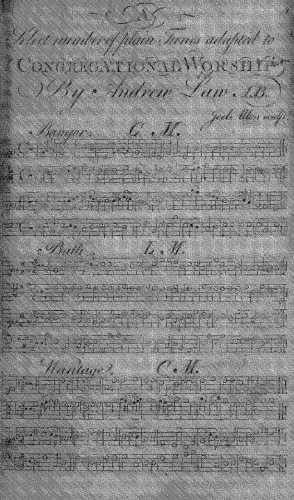 A
Select number of plain Tunes adapted to
CONGREGATIONAL WORSHIP
By Andrew Law A.B.
Joel Allen
Bangor. C. M.
Bath. L. M.
Wantage. C. M.